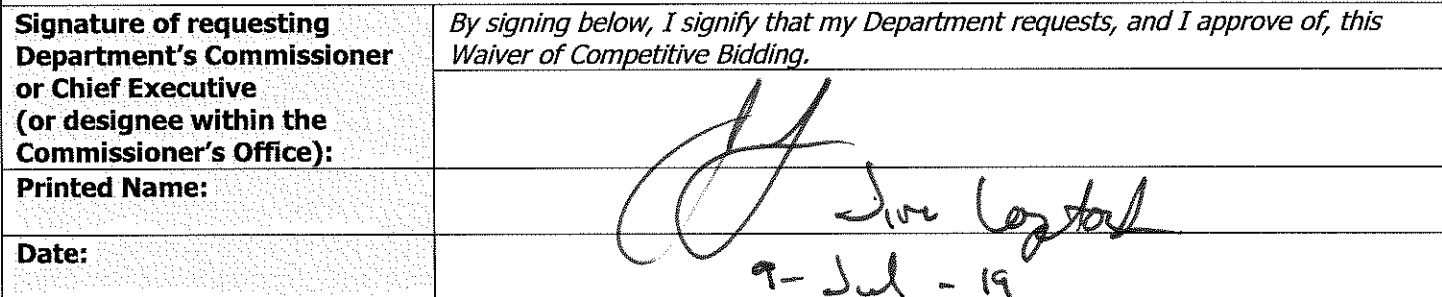 Signature of requesting
Department's Commissioner
or Chief Executive
(or designee within the
Commissioner's Office):
By signing below, I signify that my Department requests, and I approve of, this
Waiver of Competitive Bidding.
Printed Name:
Date:
9-Jul-19